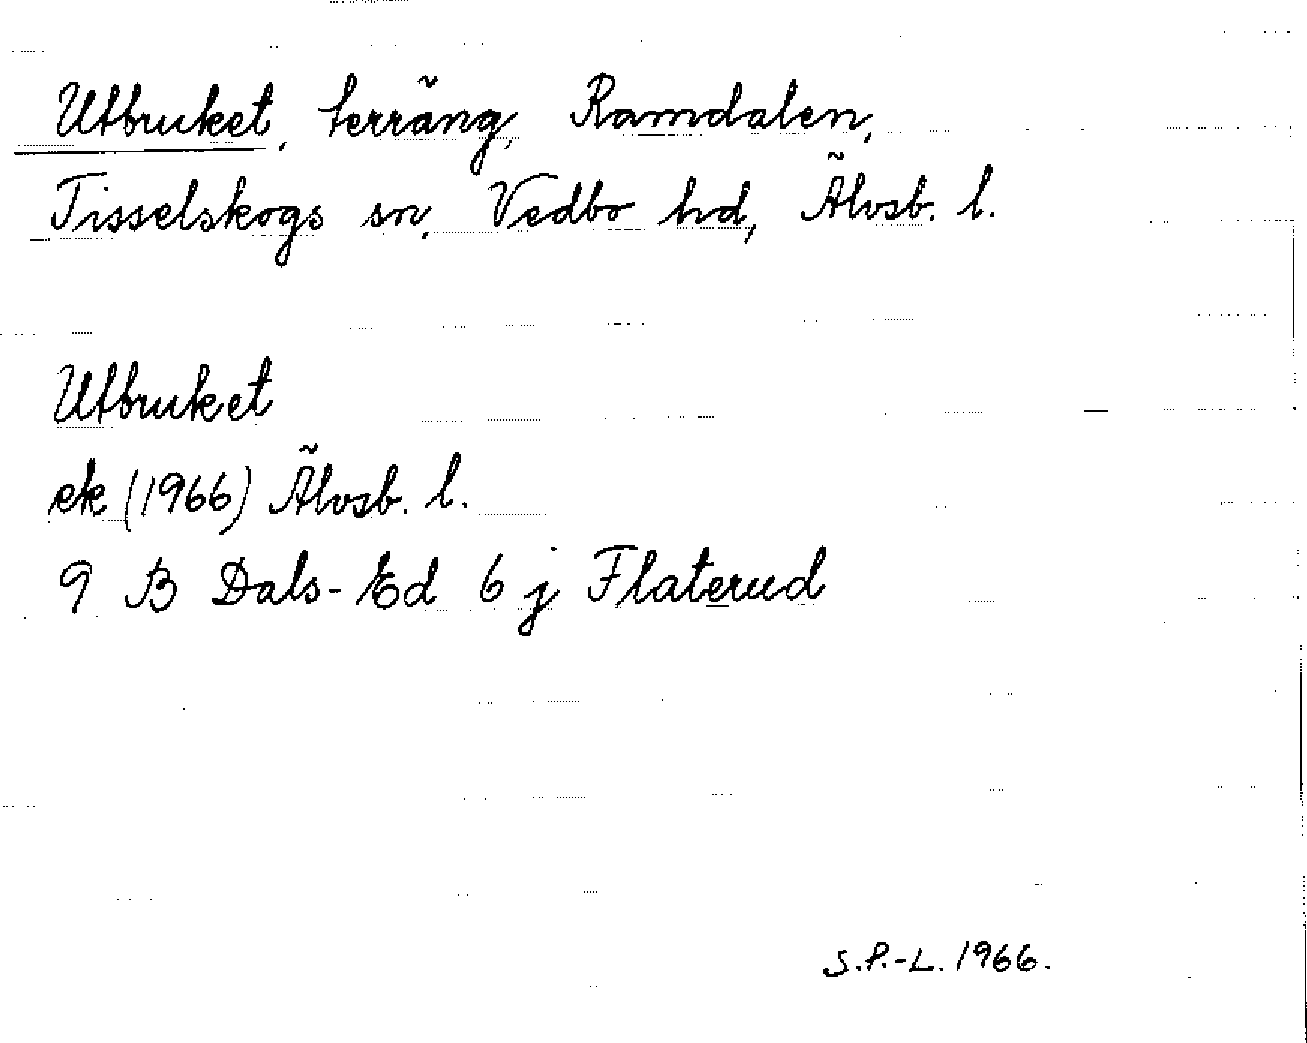 Utbruket, terräng, Ramdalen,
Tisselskogs sn, Vedbo hd, Älvsb. l.
Utbruket
ek (1966) Älvsb. l.
9 B Dals-Ed 6 j Flaterud
S.P.-L. 1966.